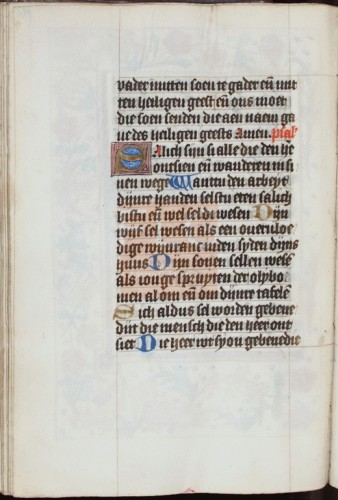 vader mitten soen te gader eñ mit
ten heiligen geest eñ ons moet
die soen senden die aen naem ga
ue des heiligen geests Amen. psal'
Salich syn si alle die den he
ontsien eñ wanderen in si
nen wege Want u den arbeyt
dijnre handen selstu eten salich
bistu eñ wel sel di wesen Dijn
wijf sel wesen als een oueruloe
dige wijnranc in den syden dijns
huus Dijn sonen sellen wesē
als ionge spruyten der olybo
men al om eñ om dijnre tafelē
Sich aldus sel worden gebene
dijt die mensch die den heer ont
siet Die heer wt syon gebenedie